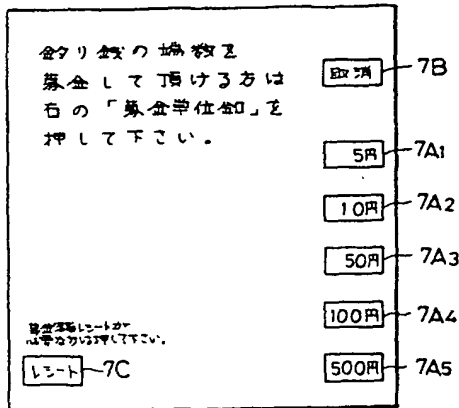 釣り銭の端数を
募金して頂ける方は
右の「募金単位釦」を
押して下さい。
取消
7B
5円
7A1
10円
7A2
50円
7A3
100円
7A4
500円
7A5
レシートが
必要な方は押して下さい。
レシート
7C